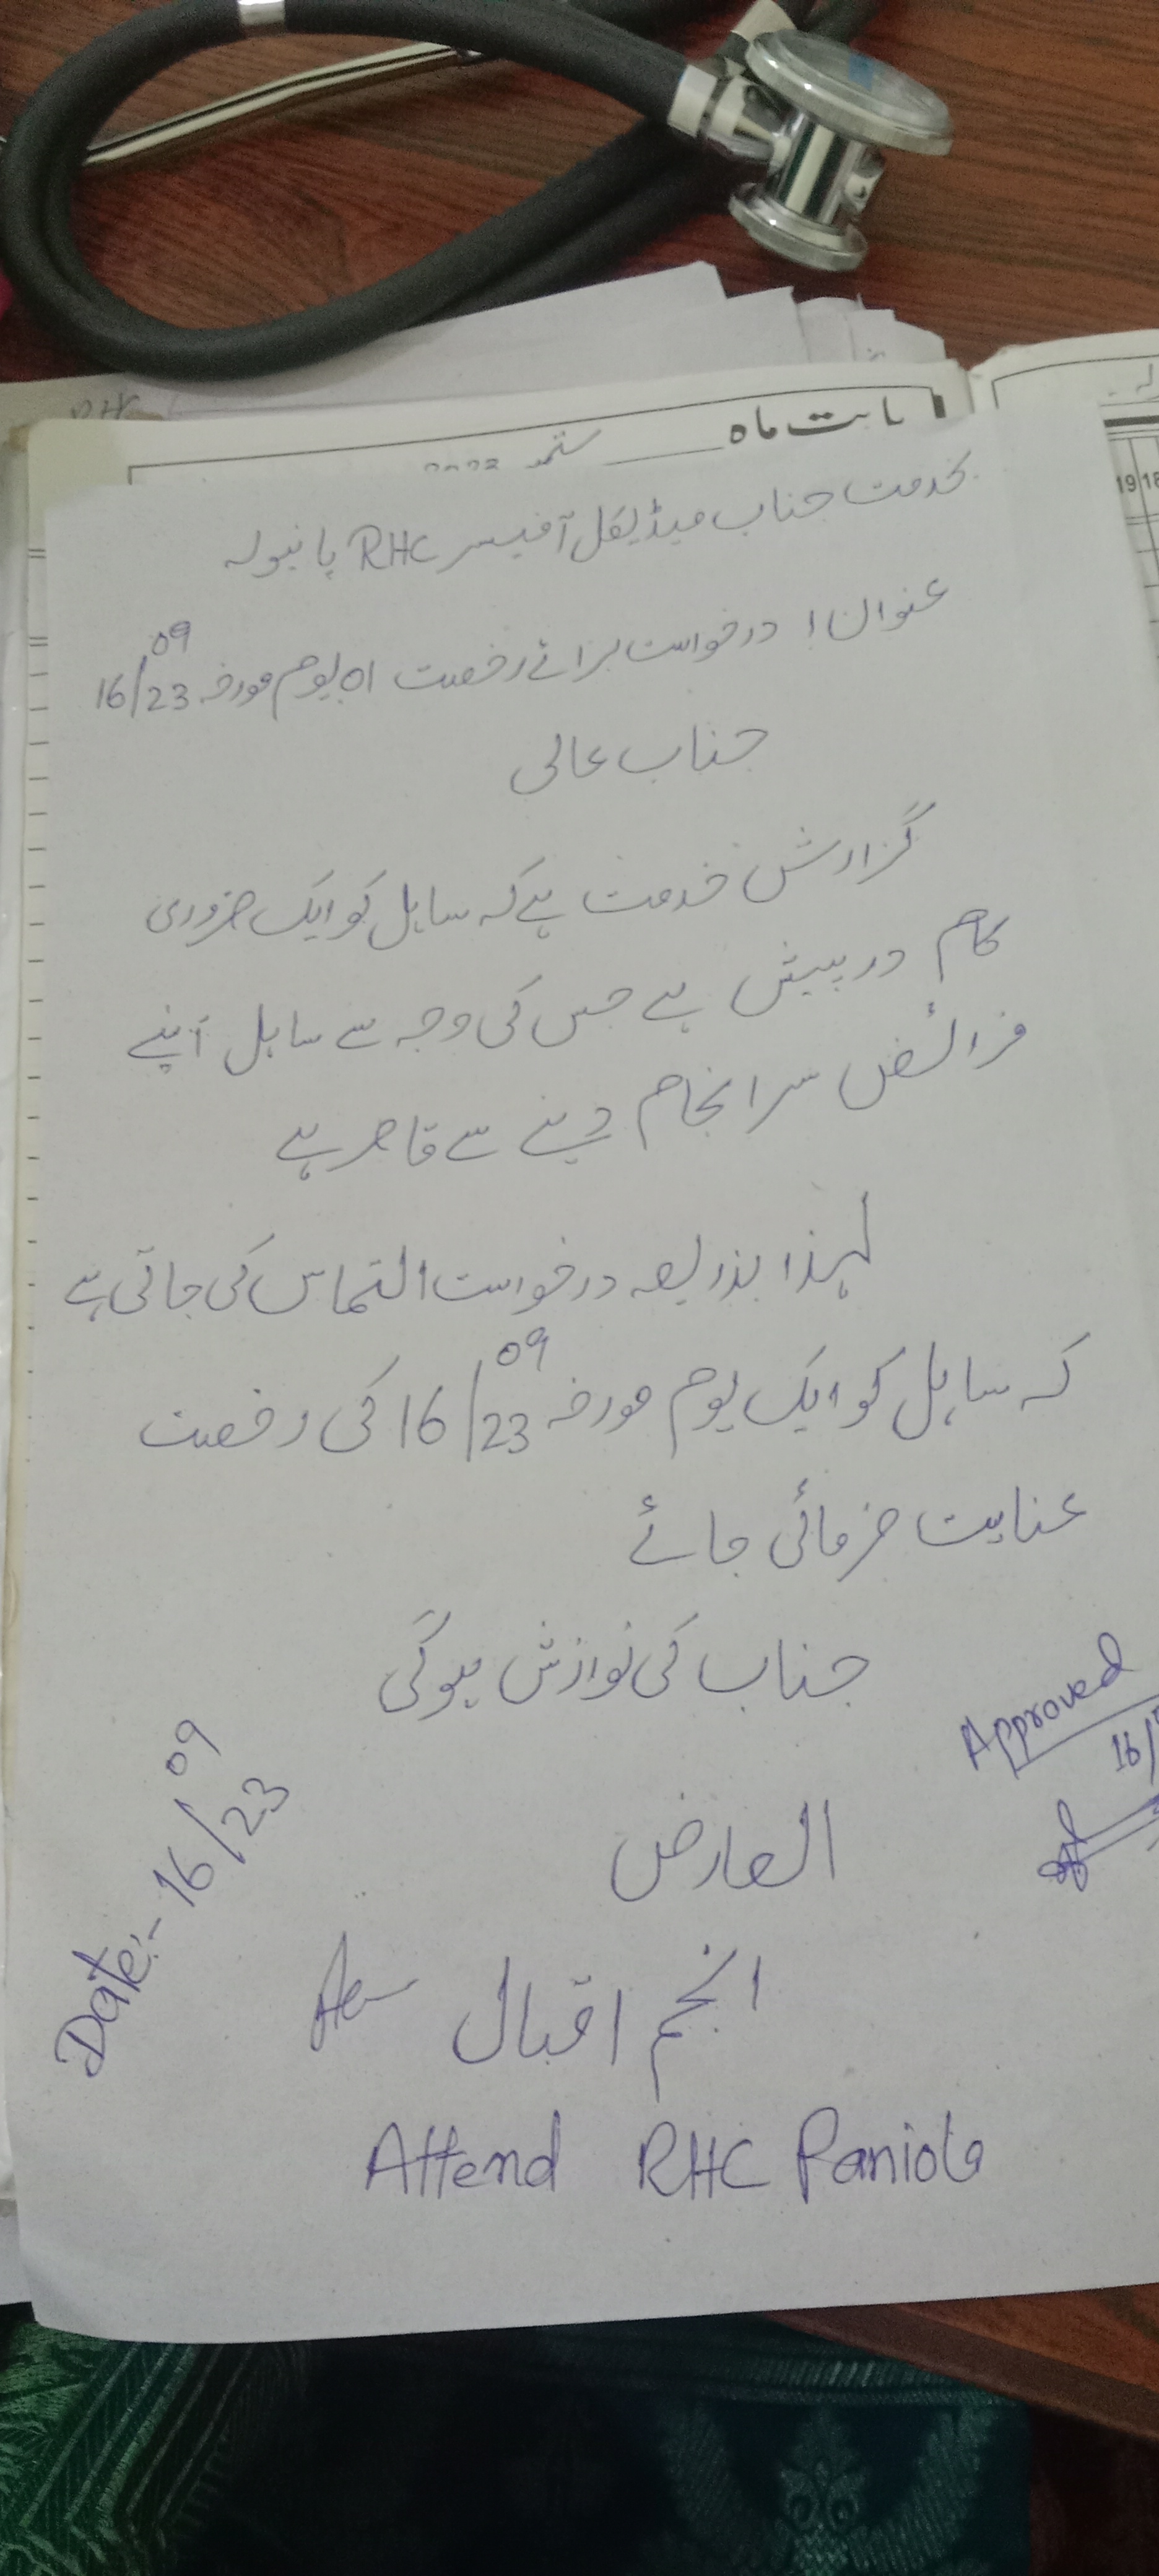 بابت ماہ ستمبر 2023
بخدمت جناب میڈیکل آفیسر RHC پانیولہ
عنوان! درخواست برائے رخصت 01 یوم مورخہ 16/09/23
جناب عالی
گزارش خدمت ہے کہ سایل کو ایک ضروری
کام درپیش ہے جس کی وجہ سے سایل اپنے
فرائض سرانجام دینے سے قاصر ہے
لہذا بذریعہ درخواست التماس کی جاتی ہے
کہ سایل کو ایک یوم مورخہ 16/09/23 کی رخصت
عنایت فرمائی جائے
جناب کی نوازش ہوگی
Approved
16/
العارض
Date:- 16/09/23
انجم اقبال
Attend RHC Paniola
19 18